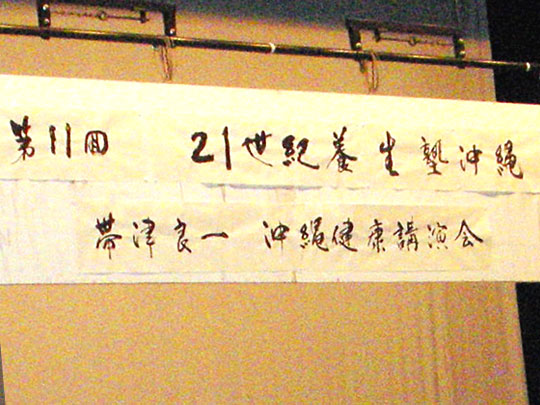 第11回 21世紀養生塾沖縄
帯津良一 沖縄健康講演会